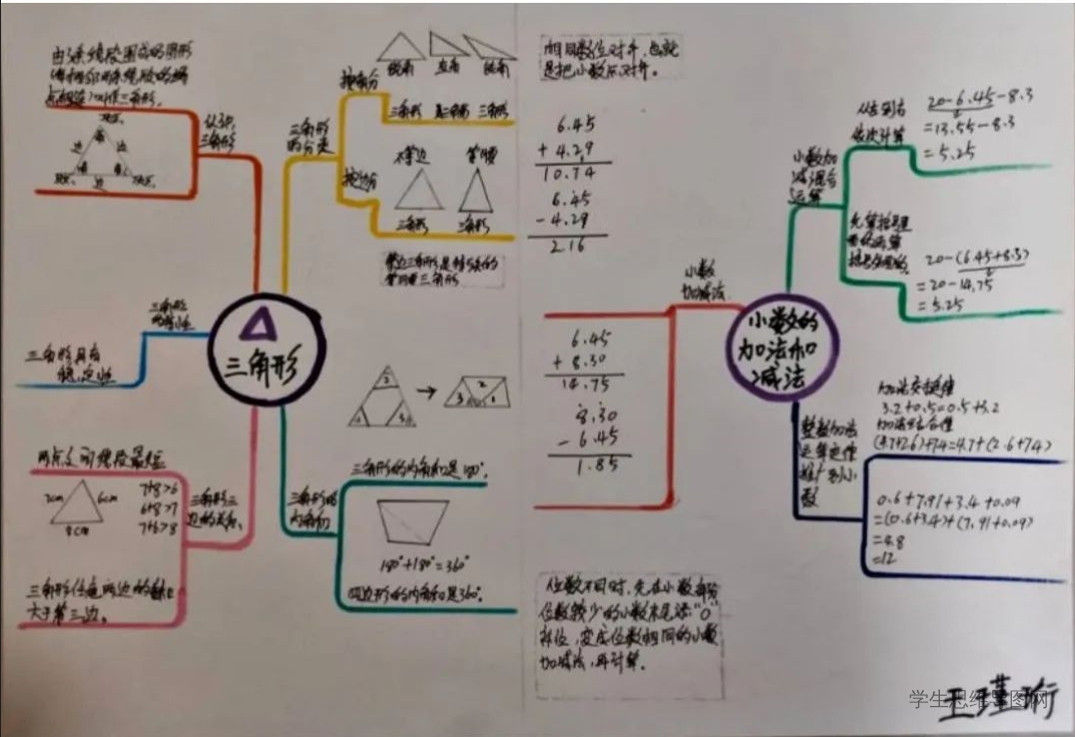 由3条线段围成的图形
(每相邻两条线段的端
点相连)叫作三角形。
认识
三角形
顶点
边
边
角
角
角
顶点
边
顶点
三角形
的分类
按角分
锐角
直角
钝角
三角形
三角形
三角形
按边分
不等边
等腰
三角形
三角形
等边三角形是特殊的
等腰三角形
三角形
的特性
三角形具有
稳定性
三角形
两点之间线段最短
7cm
6cm
8cm
7+8>6
6+8>7
7+6>8
三角形三
边的关系
三角形任意两边的和
大于第三边。
三角形的
内角和
2
1
3
3
2
1
三角形的内角和是180°。
180°+180°=360°
四边形的内角和是360°。
相同数位对齐,也就
是把小数点对齐。
6.45
+ 4.29
10.74
6.45
- 4.29
2.16
小数
加减法
6.45
+ 8.30
14.75
8.30
- 6.45
1.85
位数不同时,先在小数部分
位数较少的小数末尾添“0”
补位,变成位数相同的小数
加减法,再计算。
小数的
加法和
减法
小数加
减混合
运算
从左到右
依次计算
20-6.45-8.3
=13.55-8.3
=5.25
先算括号里
括号外面的
20-(6.45+8.3)
=20-14.75
=5.25
整数加法
运算定律
推广到小
数
加法交换律
3.2+0.5=0.5+3.2
加法结合律
(4.7+2.6)+7.4=4.7+(2.6+7.4)
0.6+7.91+3.4+0.09
=(0.6+3.4)+(7.91+0.09)
=4.8
=12
王瑾珩
学生思维导图网